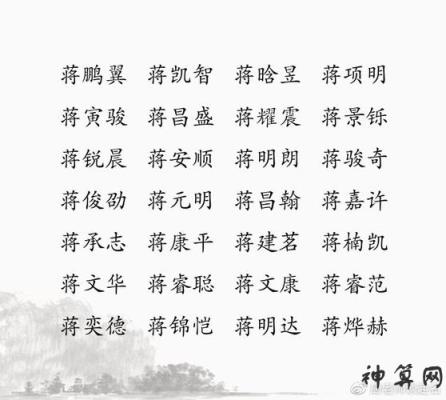 蒋鹏翼 蒋凯智 蒋晗昱 蒋项明
蒋寅骏 蒋昌盛 蒋耀震 蒋景铄
蒋锐晨 蒋安顺 蒋明朗 蒋骏奇
蒋俊劭 蒋元明 蒋昌翰 蒋嘉许
蒋承志 蒋康平 蒋建茗 蒋楠凯
蒋文华 蒋睿聪 蒋文康 蒋睿范
蒋奕德 蒋锦恺 蒋明达 蒋烨赫
神算网